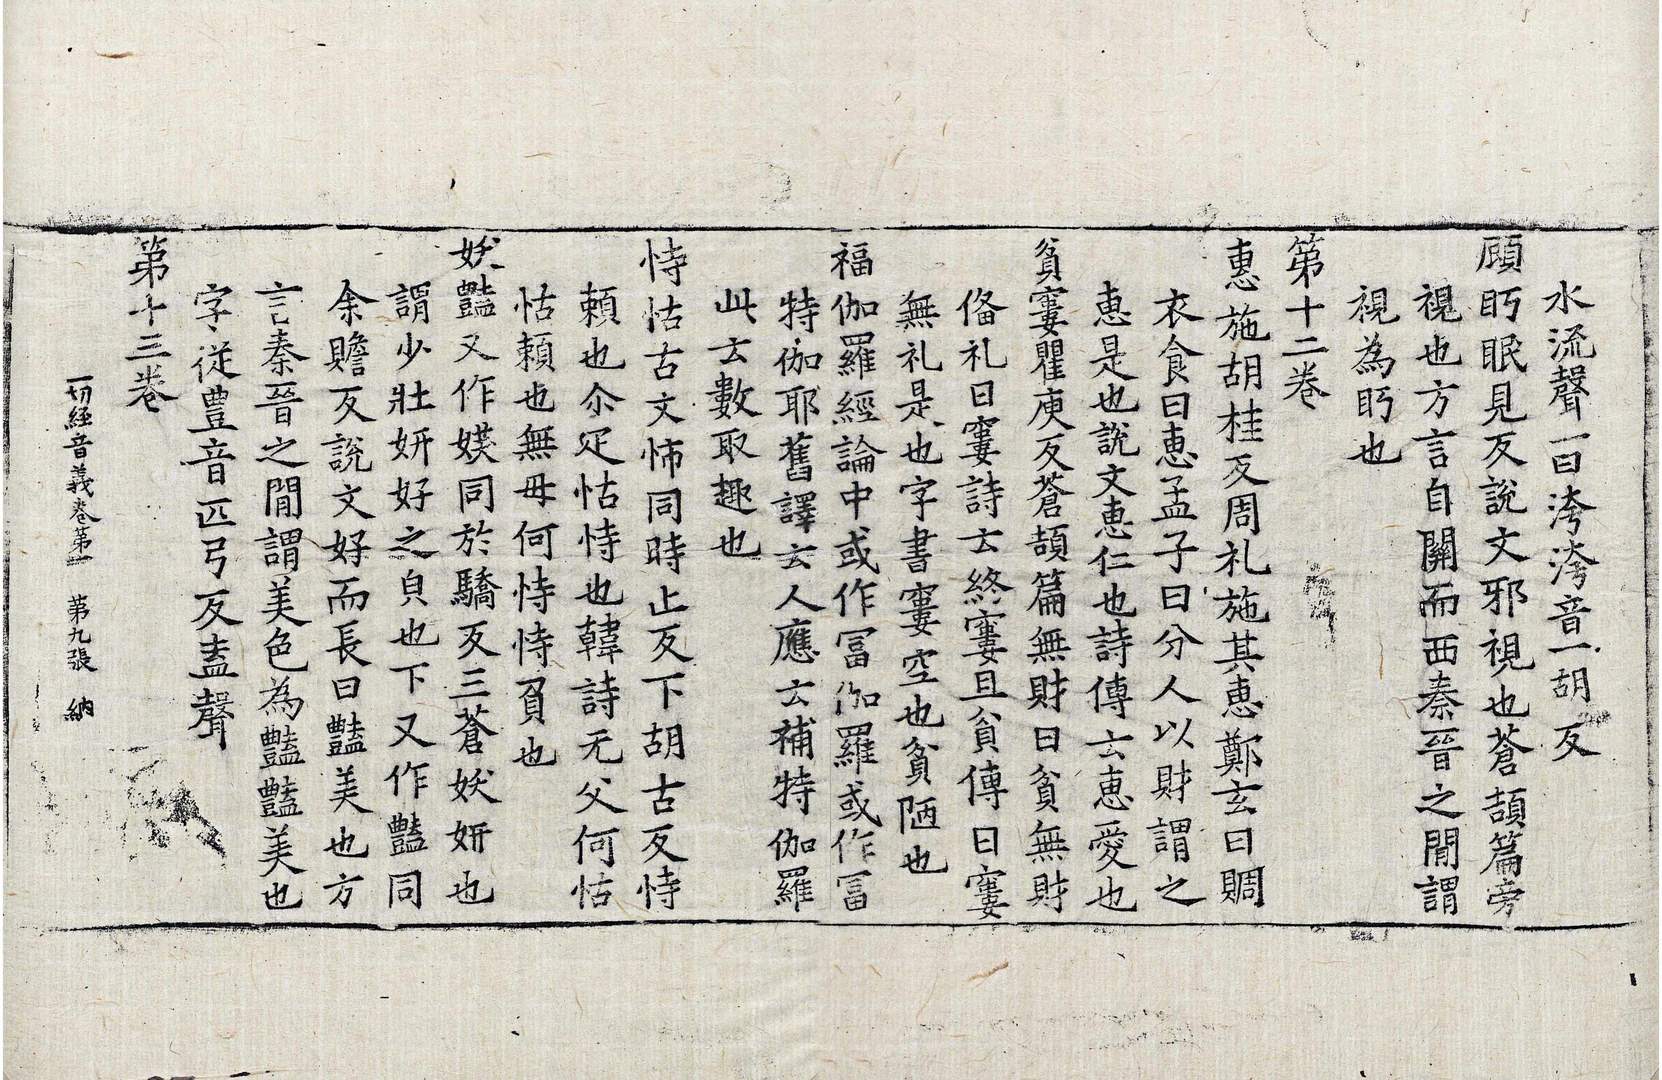 水流聲一曰洿洿音一胡反
頋眄眠見反說文邪視也蒼頡篇旁
視也方言自關而西秦晉之閒謂
視為眄也
第十二卷
惠施胡桂反周礼施其惠鄭玄曰賙
衣食曰惠孟子曰分人以財謂之
惠是也說文惠仁也詩傳云惠愛也
貧寠瞿庾反蒼頡篇無財曰貧無財
俻礼曰寠詩云終寠且貧傳曰寠
無礼是也字書寠空也貧陋也
福伽羅經論中或作冨伽羅或作冨
特伽耶舊譯云人應云補特伽羅
此云數取趣也
恃怙古文怖同時止反下胡古反恃
頼也尒疋怙恃也韓詩无父何怙
怙頼也無毋何恃恃負也
妖豔又作媄同於驕反三蒼妖妍也
謂少壯妍好之皃也下又作豓同
余贍反說文好而長曰豔美也方
言秦晉之閒謂美色為豔豔美也
字從豊音匹弓反盍聲
第十三卷
一切經音義卷第一 第九張 納